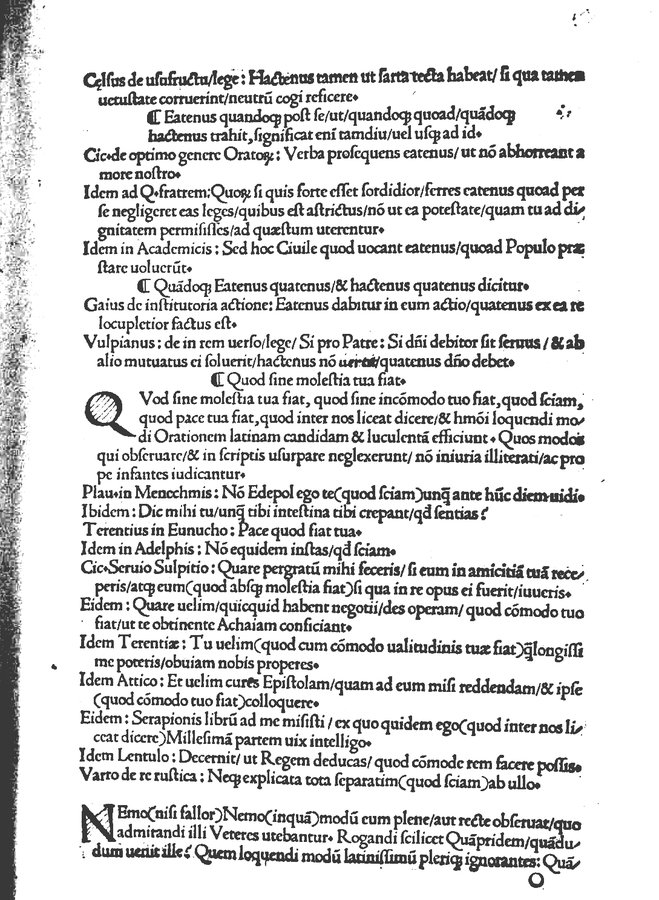 Cęlsus de usufructu/lege: Hactenus tamen ut sarta tecta habeat/ si qua tamen
uetustate corruerint/neutrū cogi reficere.
¶ Eatenus quandoqꝫ post se/ut/quandoqꝫ quoad/quādoqꝫ
hactenus trahit, significat enī tamdiu/uel usqꝫ ad id.
Cic.de optimo genere Oratoꝝ: Verba prosequens eatenus/ ut nō abhorreant a
more nostro.
Idem ad Q.fratrem: Quoꝝ si quis forte esset sordidior/ferres eatenus quoad per
se negligeret eas leges/quibus est astrictus/nō ut ea potestate/quam tu ad di-
gnitatem permisisses/ad quæstum uterentur.
Idem in Academicis: Sed hoc Ciuile quod uocant eatenus/quoad Populo præ
stare uoluerūt.
¶ Quādoqꝫ Eatenus quatenus/& hactenus quatenus dicitur.
Gaius de institutoria actione: Eatenus dabitur in eum actio/quatenus ex ea re
locupletior factus est.
Vulpianus: de in rem uerso/lege/ Si pro Patre: Si dñi debitor sit seruus/& ab
alio mutuatus ei soluerit/hactenus nō /quatenus dño debet.
¶ Quod sine molestia tua fiat.
QVod sine molestia tua fiat, quod sine incōmodo tuo fiat, quod sciam,
quod pace tua fiat, quod inter nos liceat dicere/& hmōi loquendi mo-
di Orationem latinam candidam & luculentā efficiunt. Quos modos
qui obseruare/& in scriptis usurpare neglexerunt/ nō iniuria illiterati/ac pro
pe infantes iudicantur.
Plau.in Menechmis: Nō Edepol ego te(quod sciam)unq̄ ante hūc diem uidi.
Ibidem: Dic mihi tu/unq̄ tibi intestina tibi crepant/qđ sentias?
Terentius in Eunucho: Pace quod fiat tua.
Idem in Adelphis: Nō equidem instas/qđ sciam.
Cic.Seruio Sulpitio: Quare pergratū mihi feceris/ si eum in amicitiā tuā rece-
peris/atqꝫ eum(quod absqꝫ molestia fiat)si qua in re opus ei fuerit/iuueris.
Eidem: Quare uelim/quicquid habent negotii/des operam/ quod cōmodo tuo
fiat/ut te obtinente Achaiam conficiant.
Idem Terentiæ: Tu uelim(quod cum cōmodo ualitudinis tuæ fiat)q̄longissi
me poteris/obuiam nobis properes.
Idem Attico: Et uelim cures Epistolam/quam ad eum misi reddendam/& ipse
(quod cōmodo tuo fiat)colloquere.
Eidem: Serapionis librū ad me misisti/ ex quo quidem ego(quod inter nos li-
ceat dicere)Millesimā partem uix intelligo.
Idem Lentulo: Decernit/ ut Regem deducas/ quod cōmode rem facere possis.
Varro de re rustica: Neqꝫ explicata tota separatim(quod sciam)ab ullo.
NEmo(nisi fallor)Nemo(inquā)modū eum plene/aut recte obseruat/quo
admirandi illi Veteres utebantur. Rogandi scilicet Quāpridem/quādu-
dum uenit ille? Quem loquendi modū latinissimū pleriqꝫ ignorantes: Quā-
O